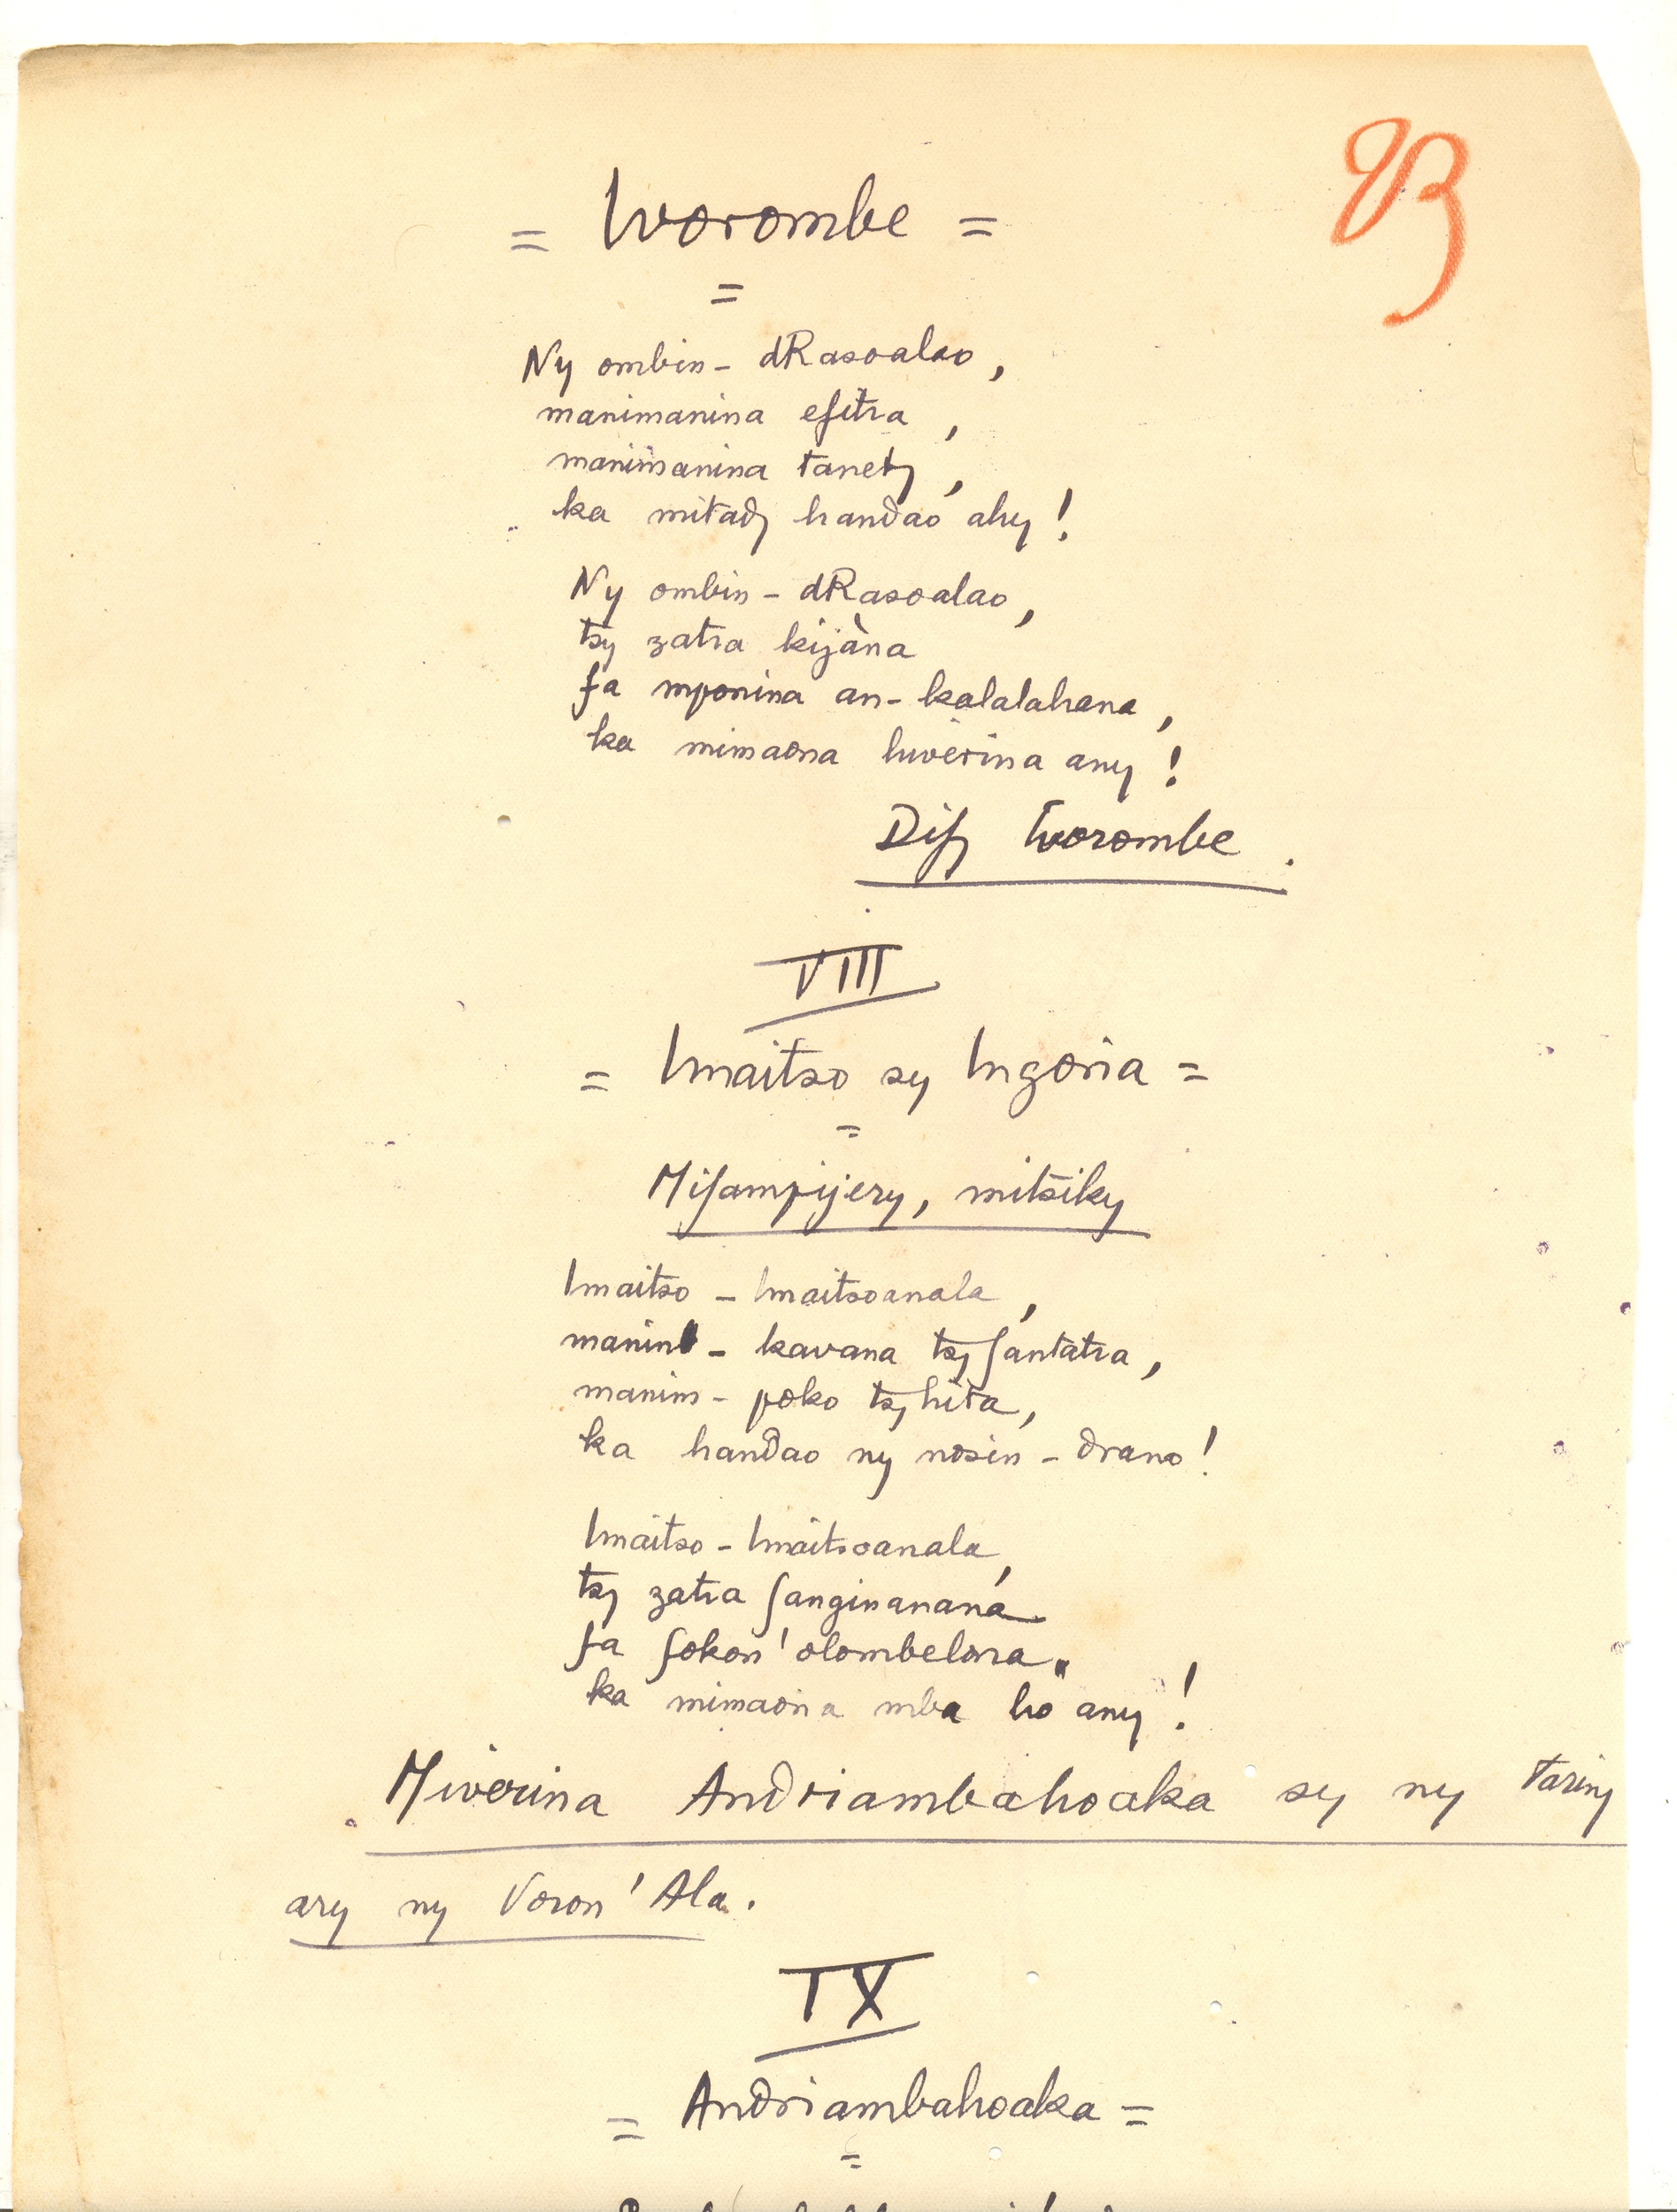 23
= Ivorombe =
=
Ny ombin-dRasoalao,
manimanina efitra,
manimanina tanety,
ka mitady handao ahy!
Ny ombin-dRasoalao,
tsy zatra kijàna
fa mponina an-kalalahana,
ka mimaona hiverina any!
Dify Ivorombe.
VIII
= Imaitso sy Ingoria =
=
Mifampijery, mitsiky
Imaitso - Imaitsoanala,
manin - kavana tsy fantatra,
manim - poko tsy hita,
ka handao ny nosin - drano!
Imaitso - Imaitsoanala,
tsy zatra fanginanana
fa fokon' olombelona,
ka mimaona mba ho any!
Miverina Andriambahoaka sy ny tariny
ary ny Voron' Ala.
IX
= Andriambahoaka =
=